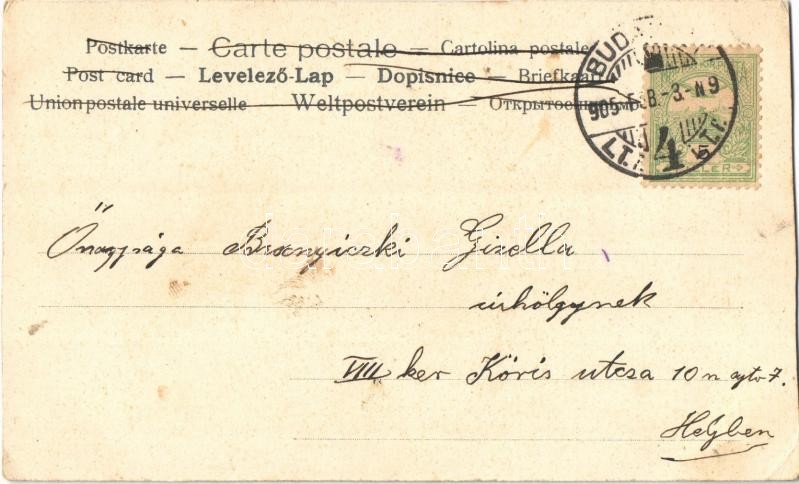 Postkarte — Carte postale — Cartolina postale
Post card — Levelező-Lap — Dopisnice — Briefkaart
Union postale universelle — Weltpostverein — Открытое
BUDA
905 FEB. -3. N 9
4
5
LER
Őnagysága Gizella
úrhölgynek
VIII ker Kőris utcza 10 n ajtó 7.
Helyben